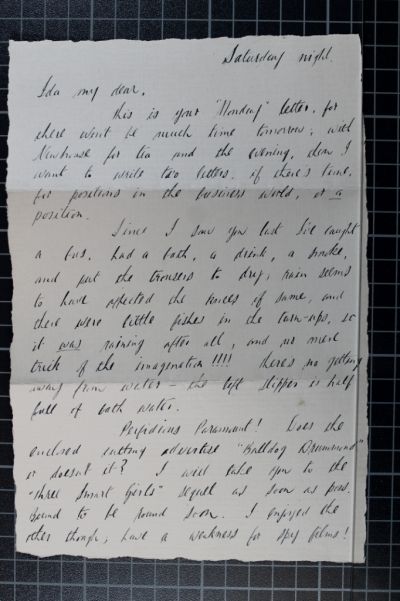 Saturday night.
Ida my dear,
this is your "Monday" letter, for
there wont be much time tomorrow, with
Newhouse for tea and the evening, and I
want to write two letters, if there's time,
for positions in the business world, or a
position.
Since I saw you last I've caught
a bus, had a bath, a drink, a smoke,
and put the trousers to dry; rain seems
to have affected the knees of same, and
there were little fishes in the turn-ups, so
it was raining after all, and no mere
trick of the imagination!!!! there's no getting
away from water – the left slipper is half
full of bath water.
Perfidious Paramount! Does the
enclosed cutting advertise "Bulldog Drummond"
or doesnt it? I will take you to the
"Three Smart Girls" sequel as soon as poss.
Bound to be round soon. I enjoyed the
other though, have a weakness for spy films!